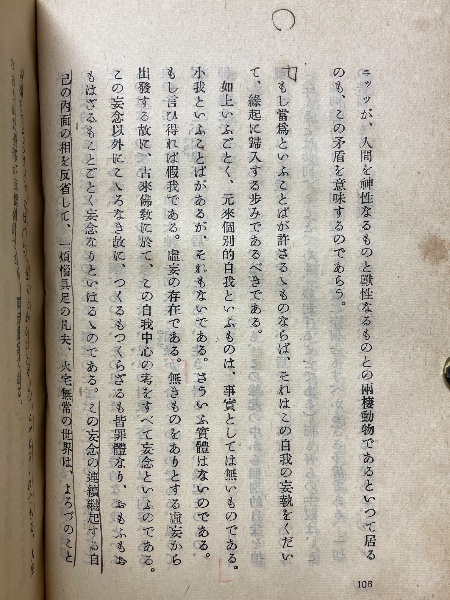 ニッツが、人間を神性なるものと獸性なるものとの兩棲動物であるといつて居る
のも、この矛盾を意味するのであらう。
もし當爲といふことばが許さるゝものならば、それはこの自我の妄執をくだい
て、緣起に歸入する歩みであるべきである。
如上いふごとく、元來個別的自我といふものは、事實としては無いものである。
小我といふことばがあるが、それもないである。さういふ實體はないのである。
もし言ひ得れば假我である。虛妄の存在である。無きものをありとする虛妄から
出發する故に、古來佛教に於て、この自我中心の考をすべて妄念といふのである。
この妄念以外にこゝろなき故に、つくるもつくらざるも皆罪體なり、おもふもお
もはざるもことごとく妄念なりといはるゝのである。この妄念の連續繼起する自
己の內面の相を反省して、「煩惱具足の凡夫、火宅無常の世界は、よろづのこと
106